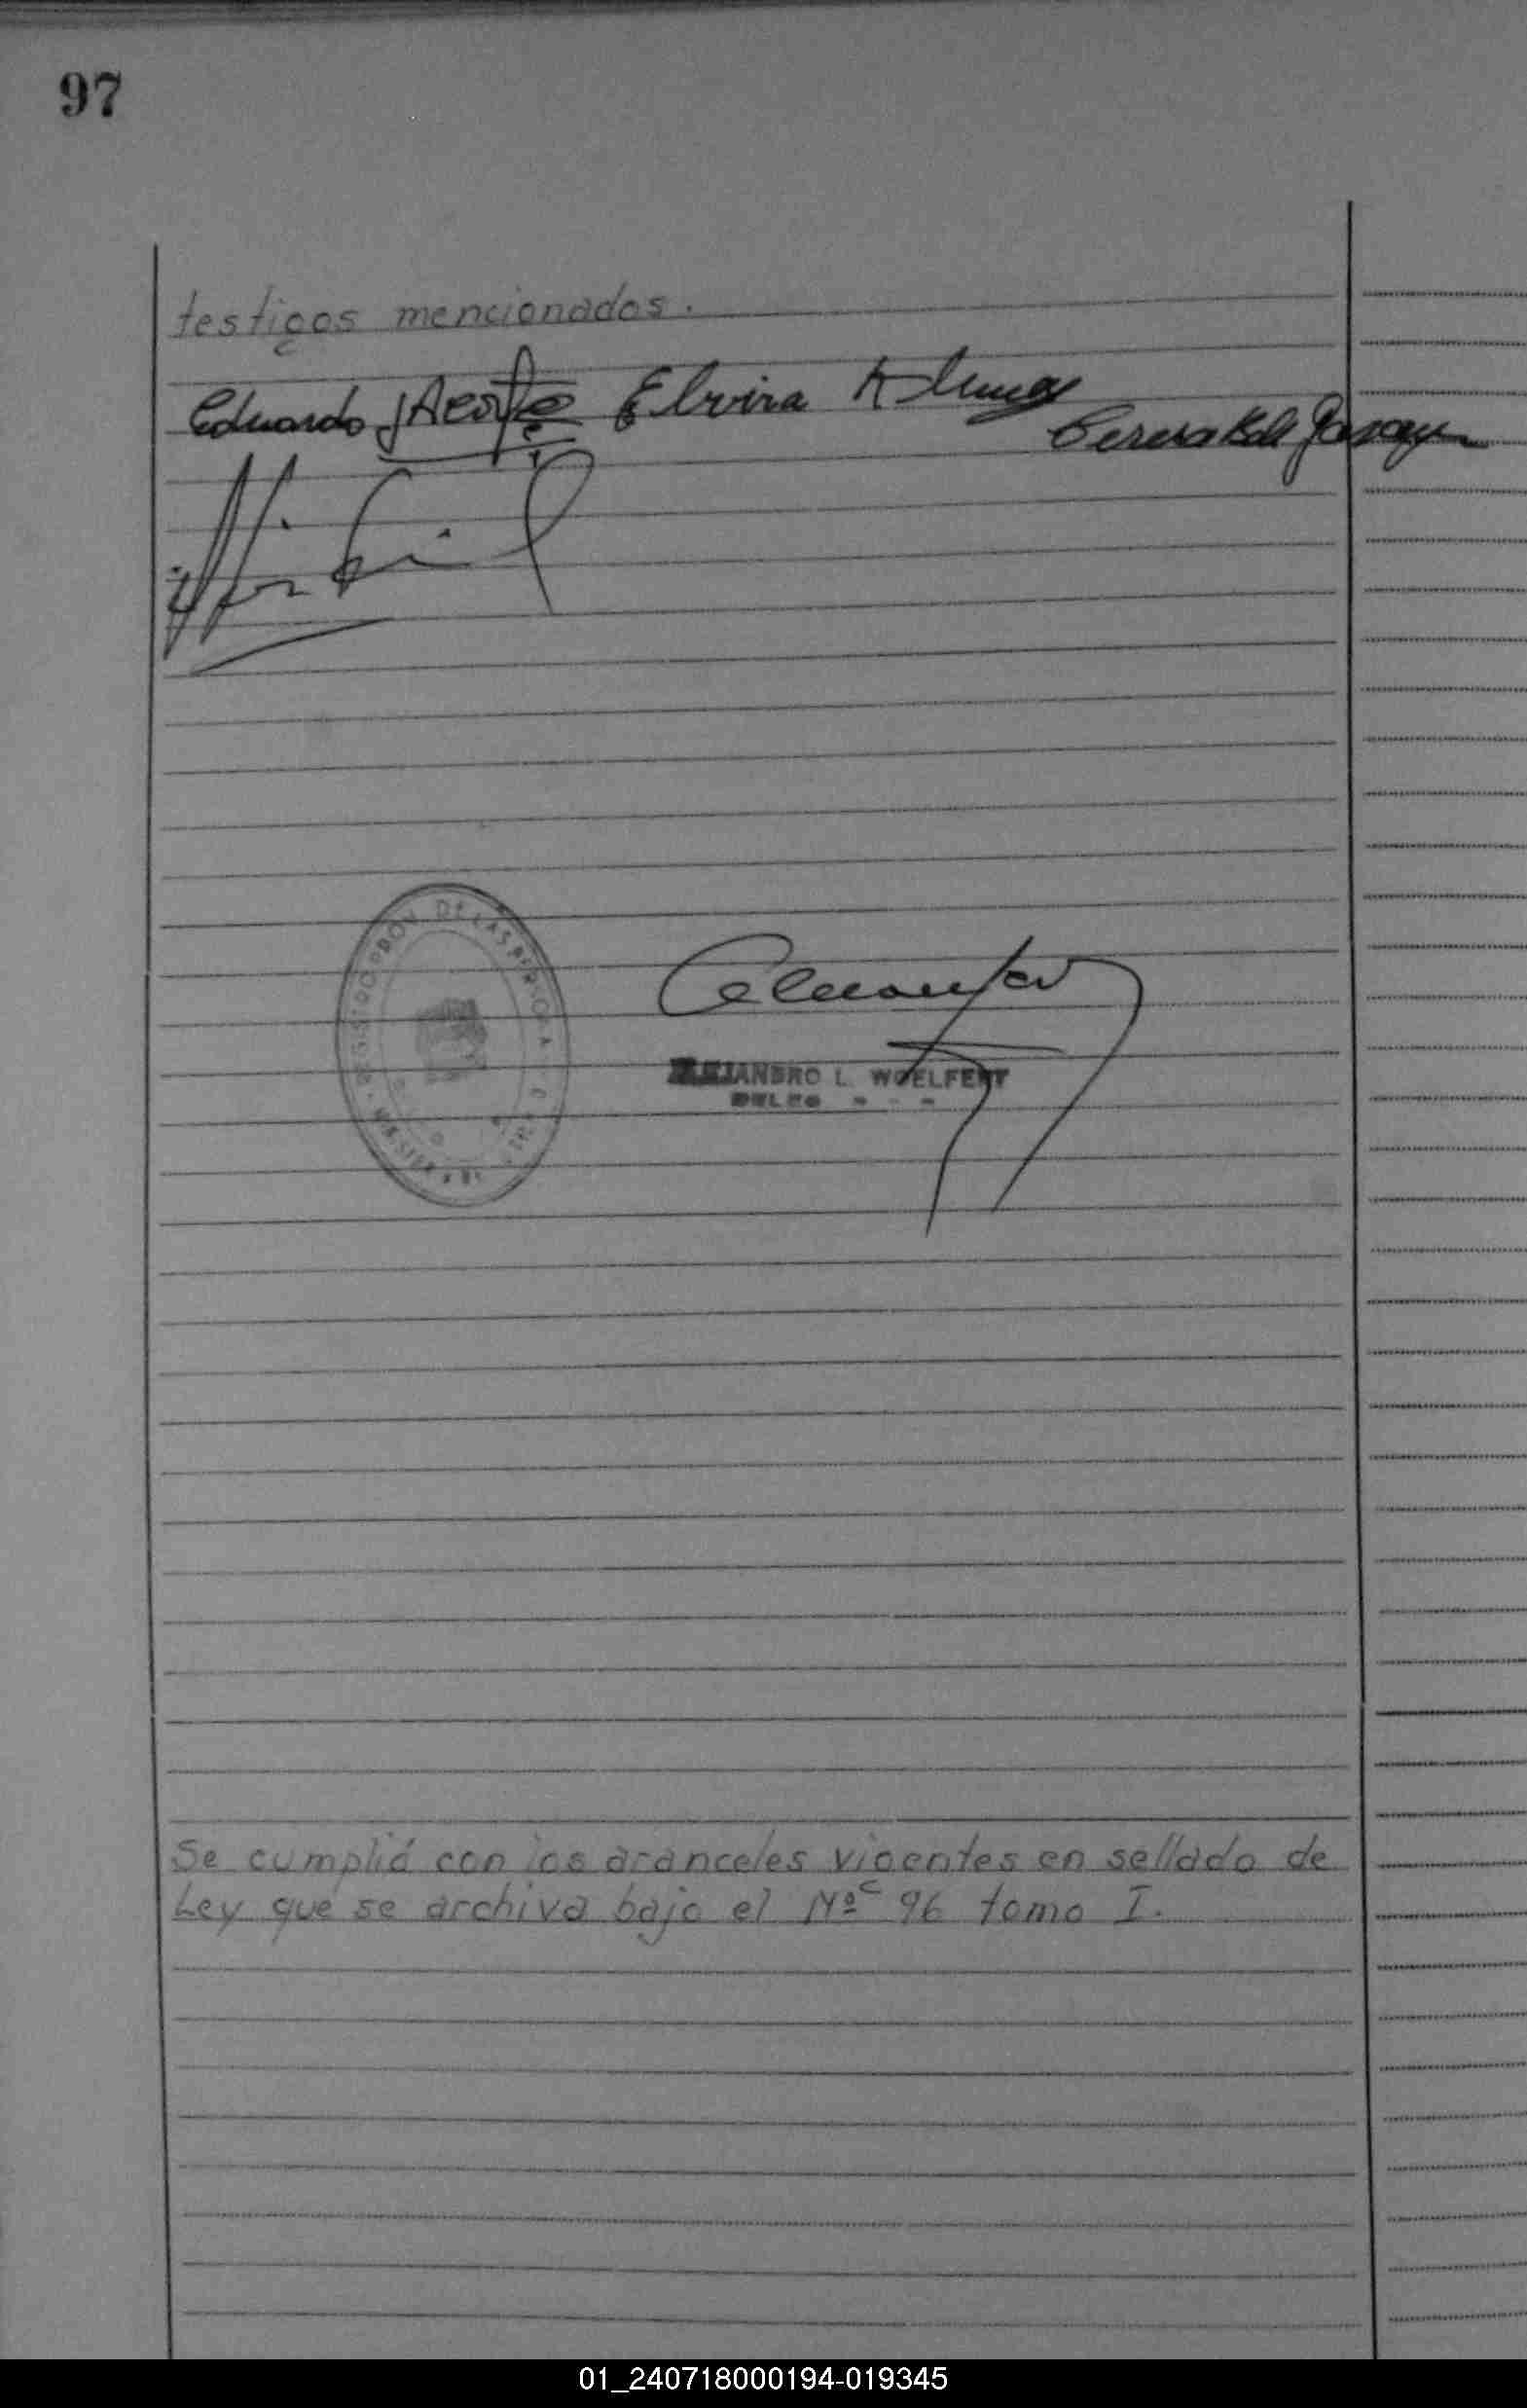 97
testigos mencionados.
Eduardo J Acosta Elvira K
Teresa K de
REGISTRO PROV. DE LAS PERSONAS
ALEJANDRO L. WOELFERT
Se cumplió con los aranceles vigentes en sellado de
Ley que se archiva bajo el Nº 96 tomo I.
01_240718000194-019345